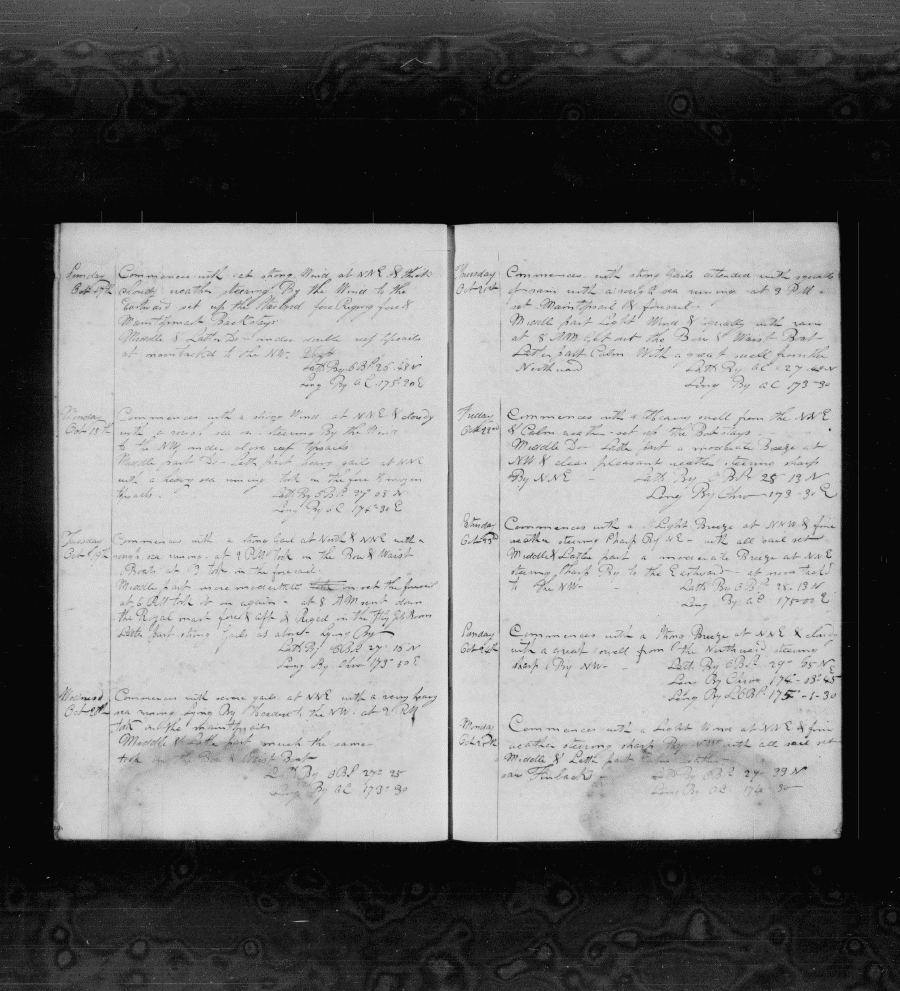 Sunday Commences with a strong Wind at NNE & thick
Oct 17th cloudy weather steering By the Wind to the
Eastward set up the fore Riging fore &
Maintopmast Backstays
Middle & Latter Do under double reef topsails
at noon tacked to the NW.
Latt By OBS 26-48 N
Long By OC 175-20 E
Monday Commences with a strong Wind at NNE & cloudy
Oct 18th with a rough sea on steering By the Wind
to the NW under close reef topsails
Middle part Do - Latter part heavy gails at NNE
with a heavy sea running took in the fore
Latt By OBS 27-08 N
Long By OC 174-30 E
Tuesday Commences with a strong Gale at North & NNE with a
Oct 19th rough sea running. at 2 PM took in the Bow & Waist
Boats at 3 took in the foresail
Middle part more moderate set the foresail
at 6 PM took it in again - at 8 AM sent down
the Royal mast fore & aft & Riged in the Flying Jib Boom
Latter part strong Gails as above laying By
Latt By OBS 27-15 N
Long By Chro 173-50 E
Wednesd Commences with severe gails at NNE with a very heavy
Oct 20th sea running laying By Headed to the NW at 2 PM
took in the main topsail
Middle & Latter part much the same
took in the Bow & Waist Boat
Latt By OBS 27-25
Long By OC 173-30
Thursday Commences with strong Gails attended with
Oct 21st of rain with a rough sea running at 3 PM
set Maintopsail & foresail
Middle part Light Wind & squally with rain
at 8 AM got out the Bow & Waist Boat
Latter part Calm With a great swell from the
Northward Latt By OC 27-40 N
Long By OC 173-30
Friday Commences with a Heavy swell from the NNE
Oct 22nd & Calm weather set up the Backstays
Middle Do - Latter part a moderate Breeze at
NW & clear pleasant weather steering sharp
By NNE - Latt By OBS 28-13 N
Long By Chro 173-30 E
Saturday Commences with a Light Breeze at NNW & fine
Oct 23d weather steering Sharp By NE - with all sail set
Middle & Latter part a moderate Breeze at NNE
steering Sharp By to the Eastward - at noon tack'd
to the NW - Latt By OBS 28-13 N
Long By OC 175-00 E
Sunday Commences with a Strong Breeze at NNE & cloudy
Oct 24th with a great swell from the Northward steering
sharp By NW - Latt By OBS 29-05 N
Long By Chro 174-18-45
Long By 175-1-30
Monday Commences with a Light Wind at NNE & fine
Oct 25th weather steering sharp By NW with all sail set
Middle & Latter part Calm weather
saw Finbacks - Latt By OBS 29-33 N
Long By OC 174-30